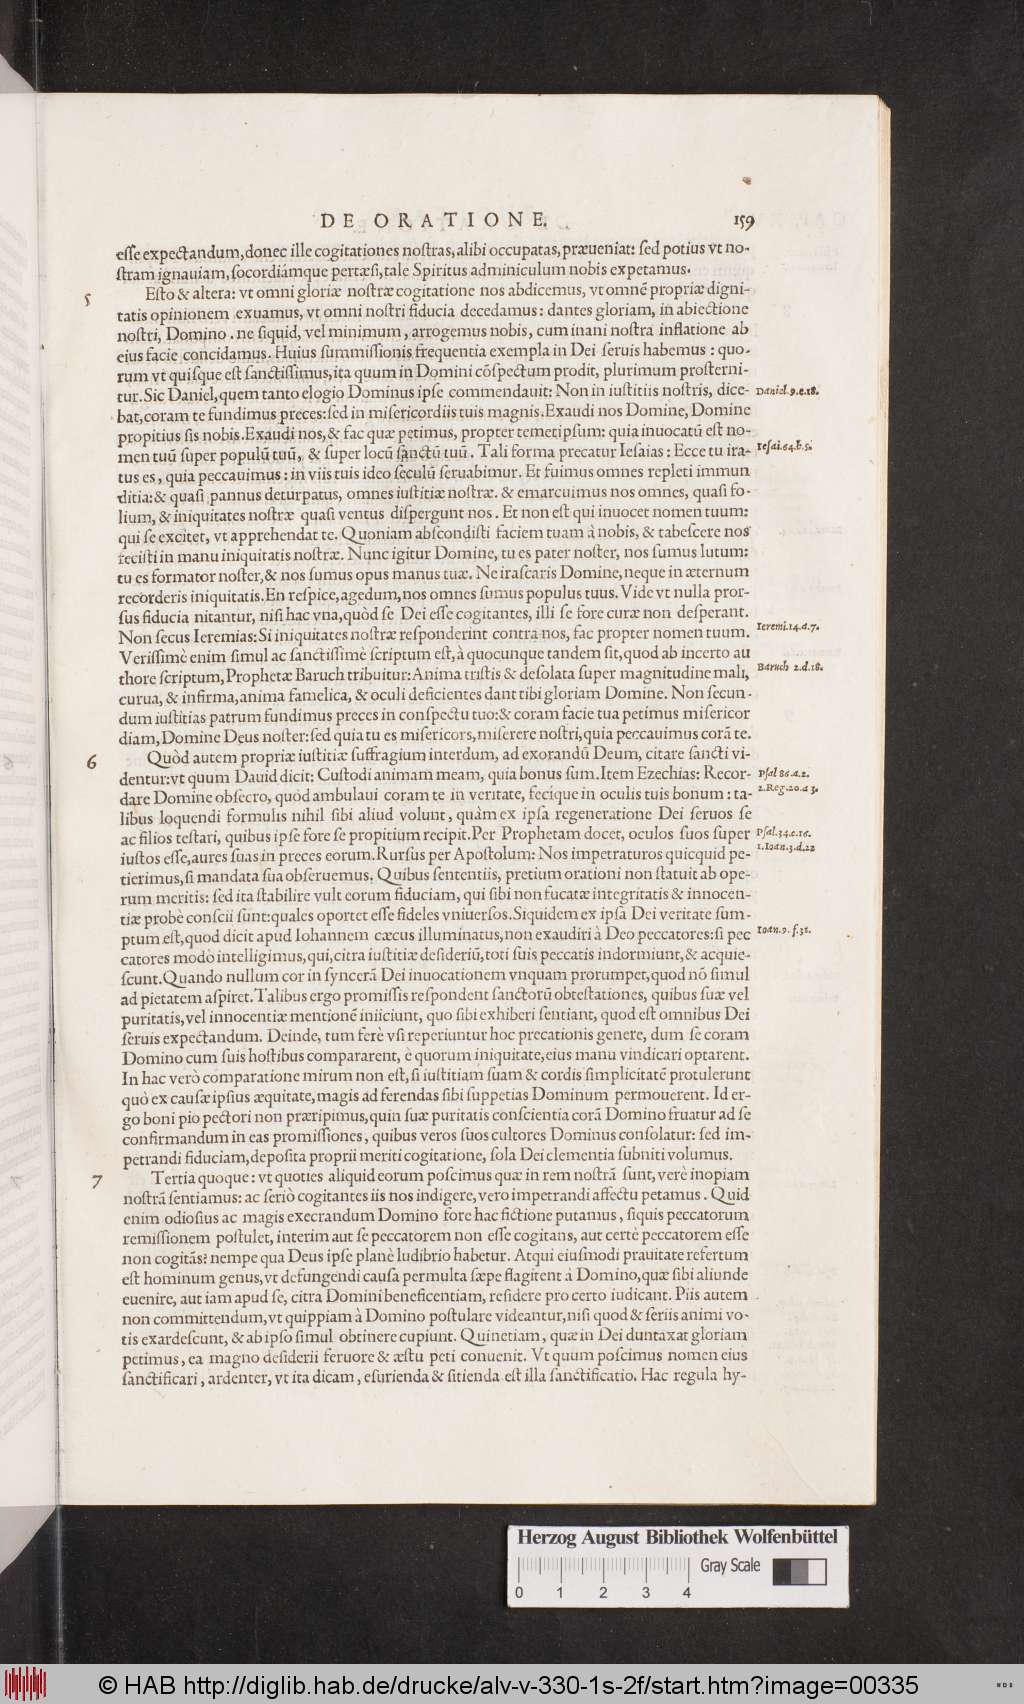 DE ORATIONE. 159
esse expectandum, donec ille cogitationes nostras, alibi occupatas, præueniat: sed potius vt no-
stram ignauiam, socordiámque pertæsi, tale Spiritus adminiculum nobis expetamus.
5 Esto & altera: vt omni gloriæ nostræ cogitatione nos abdicemus, vt omnẽ propriæ digni-
tatis opinionem exuamus, vt omni nostri fiducia decedamus: dantes gloriam, in abiectione
nostri, Domino. ne siquid, vel minimum, arrogemus nobis, cum inani nostra inflatione ab
eius facie concidamus. Huius summissionis frequentia exempla in Dei seruis habemus: quo-
rum vt quisque est sanctissimus, ita quum in Domini cõspectum prodit, plurimum prosterni-
tur. Sic Daniel, quem tanto elogio Dominus ipse commendauit: Non in iustitiis nostris, dice- Daniel. 9. e. 18.
bat, coram te fundimus preces: sed in misericordiis tuis magnis. Exaudi nos Domine, Domine
propitius sis nobis. Exaudi nos, & fac quæ petimus, propter temetipsum: quia inuocatũ est no-
men tuũ super populũ tuũ, & super locũ sanctũ tuũ. Tali forma precatur Iesaias: Ecce tu ira- Iesai. 64. b. 5.
tus es, quia peccauimus: in viis tuis ideo seculũ seruabimur. Et fuimus omnes repleti immun
ditia: & quasi pannus deturpatus, omnes iustitiæ nostræ. & emarcuimus nos omnes, quasi fo-
lium, & iniquitates nostræ quasi ventus dispergunt nos. Et non est qui inuocet nomen tuum:
qui se excitet, vt apprehendat te. Quoniam abscondisti faciem tuam à nobis, & tabescere nos
fecisti in manu iniquitatis nostræ. Nunc igitur Domine, tu es pater noster, nos sumus lutum:
tu es formator noster, & nos sumus opus manus tuæ. Ne irascaris Domine, neque in æternum
recorderis iniquitatis. En respice, agedum, nos omnes sumus populus tuus. Vide vt nulla pror-
sus fiducia nitantur, nisi hac vna, quòd se Dei esse cogitantes, illi se fore curæ non desperant.
Non secus Ieremias: Si iniquitates nostræ responderint contra nos, fac propter nomen tuum. Ieremi. 14. a. 7.
Verissimè enim simul ac sanctissimè scriptum est, à quocunque tandem sit, quod ab incerto au
thore scriptum, Prophetæ Baruch tribuitur: Anima tristis & desolata super magnitudine mali, Baruch 2. d. 18.
curua, & infirma, anima famelica, & oculi deficientes dant tibi gloriam Domine. Non secun-
dum iustitias patrum fundimus preces in conspectu tuo: & coram facie tua petimus misericor
diam, Domine Deus noster: sed quia tu es misericors, miserere nostri, quia peccauimus corã te.
6 Quòd autem propriæ iustitiæ suffragium interdum, ad exorandũ Deum, citare sancti vi-
dentur: vt quum Dauid dicit: Custodi animam meam, quia bonus sum. Item Ezechias: Recor- Psal 86. a. 2.
dare Domine obsecro, quòd ambulaui coram te in veritate, fecique in oculis tuis bonum: ta- 2. Reg. 20. a 3.
libus loquendi formulis nihil sibi aliud volunt, quàm ex ipsa regeneratione Dei seruos se
ac filios testari, quibus ipse fore se propitium recipit. Per Prophetam docet, oculos suos super Psal. 34. c. 16.
iustos esse, aures suas in preces eorum. Rursus per Apostolum: Nos impetraturos quicquid pe- 1. Ioan. 3. d. 22
tierimus, si mandata sua obseruemus. Quibus sententiis, pretium orationi non statuit ab ope-
rum meritis: sed ita stabilire vult eorum fiduciam, qui sibi non fucatæ integritatis & innocen-
tiæ probè conscii sunt: quales oportet esse fideles vniuersos. Siquidem ex ipsa Dei veritate sum-
ptum est, quod dicit apud Iohannem cæcus illuminatus, non exaudiri à Deo peccatores: si pec Ioan. 9. f. 31.
catores modò intelligimus, qui, citra iustitiæ desideriũ, toti suis peccatis indormiunt, & acquie-
scunt. Quando nullum cor in syncerã Dei inuocationem vnquam prorumpet, quod nõ simul
ad pietatem aspiret. Talibus ergo promissis respondent sanctorũ obtestationes, quibus suæ vel
puritatis, vel innocentiæ mentionẽ iniiciunt, quo sibi exhiberi sentiant, quod est omnibus Dei
seruis expectandum. Deinde, tum ferè vsi reperiuntur hoc precationis genere, dum se coram
Domino cum suis hostibus compararent, è quorum iniquitate, eius manu vindicari optarent.
In hac verò comparatione mirum non est, si iustitiam suam & cordis simplicitatẽ protulerunt
quò ex causæ ipsius æquitate, magis ad ferendas sibi suppetias Dominum permouerent. Id er-
go boni pio pectori non præripimus, quin suæ puritatis conscientia corã Domino fruatur ad se
confirmandum in eas promissiones, quibus veros suos cultores Dominus consolatur: sed im-
petrandi fiduciam, deposita proprii meriti cogitatione, sola Dei clementia subniti volumus.
7 Tertia quoque: vt quoties aliquid eorum poscimus quæ in rem nostrã sunt, verè inopiam
nostrã sentiamus: ac seriò cogitantes iis nos indigere, vero impetrandi affectu petamus. Quid
enim odiosius ac magis execrandum Domino fore hac fictione putamus, siquis peccatorum
remissionem postulet, interim aut se peccatorem non esse cogitans, aut certè peccatorem esse
non cogitãs? nempe qua Deus ipse planè ludibrio habetur. Atqui eiusmodi prauitate refertum
est hominum genus, vt defungendi causa permulta sæpe flagitent à Domino, quæ sibi aliunde
euenire, aut iam apud se, citra Domini beneficentiam, residere pro certo iudicant. Piis autem
non committendum, vt quippiam à Domino postulare videantur, nisi quod & seriis animi vo-
tis exardescunt, & ab ipso simul obtinere cupiunt. Quinetiam, quæ in Dei duntaxat gloriam
petimus, ea magno desiderii feruore & æstu peti conuenit. Vt quum poscimus nomen eius
sanctificari, ardenter, vt ita dicam, esurienda & sitienda est illa sanctificatio. Hac regula hy-
Herzog August Bibliothek Wolfenbüttel
Gray Scale
0 1 2 3 4
© HAB http://diglib.hab.de/drucke/alv-v-330-1s-2f/start.htm?image=00335